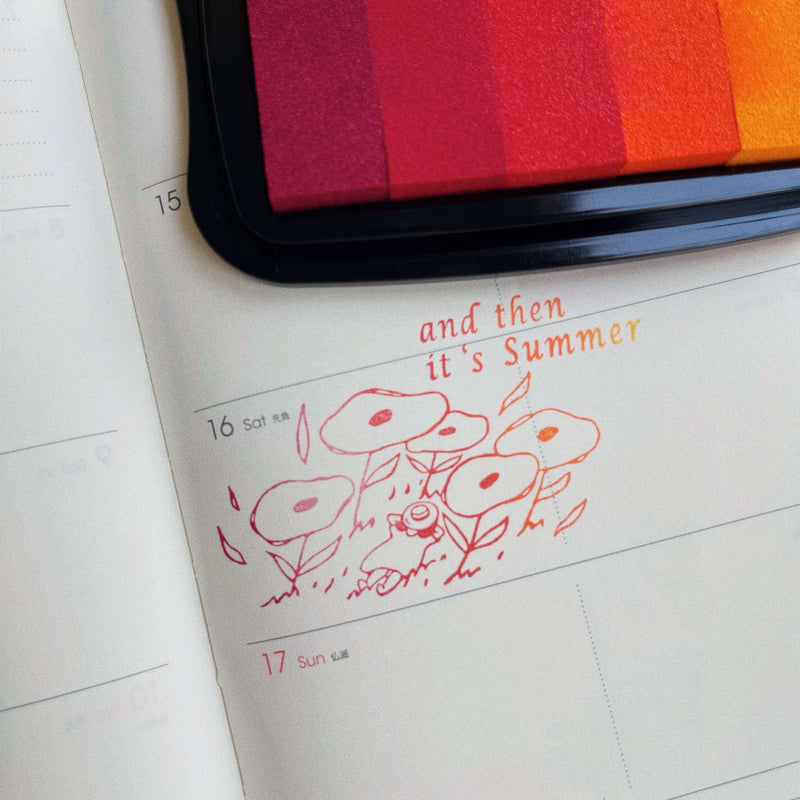 15
and then
it's Summer
16 Sat 先負
17 Sun 仏滅